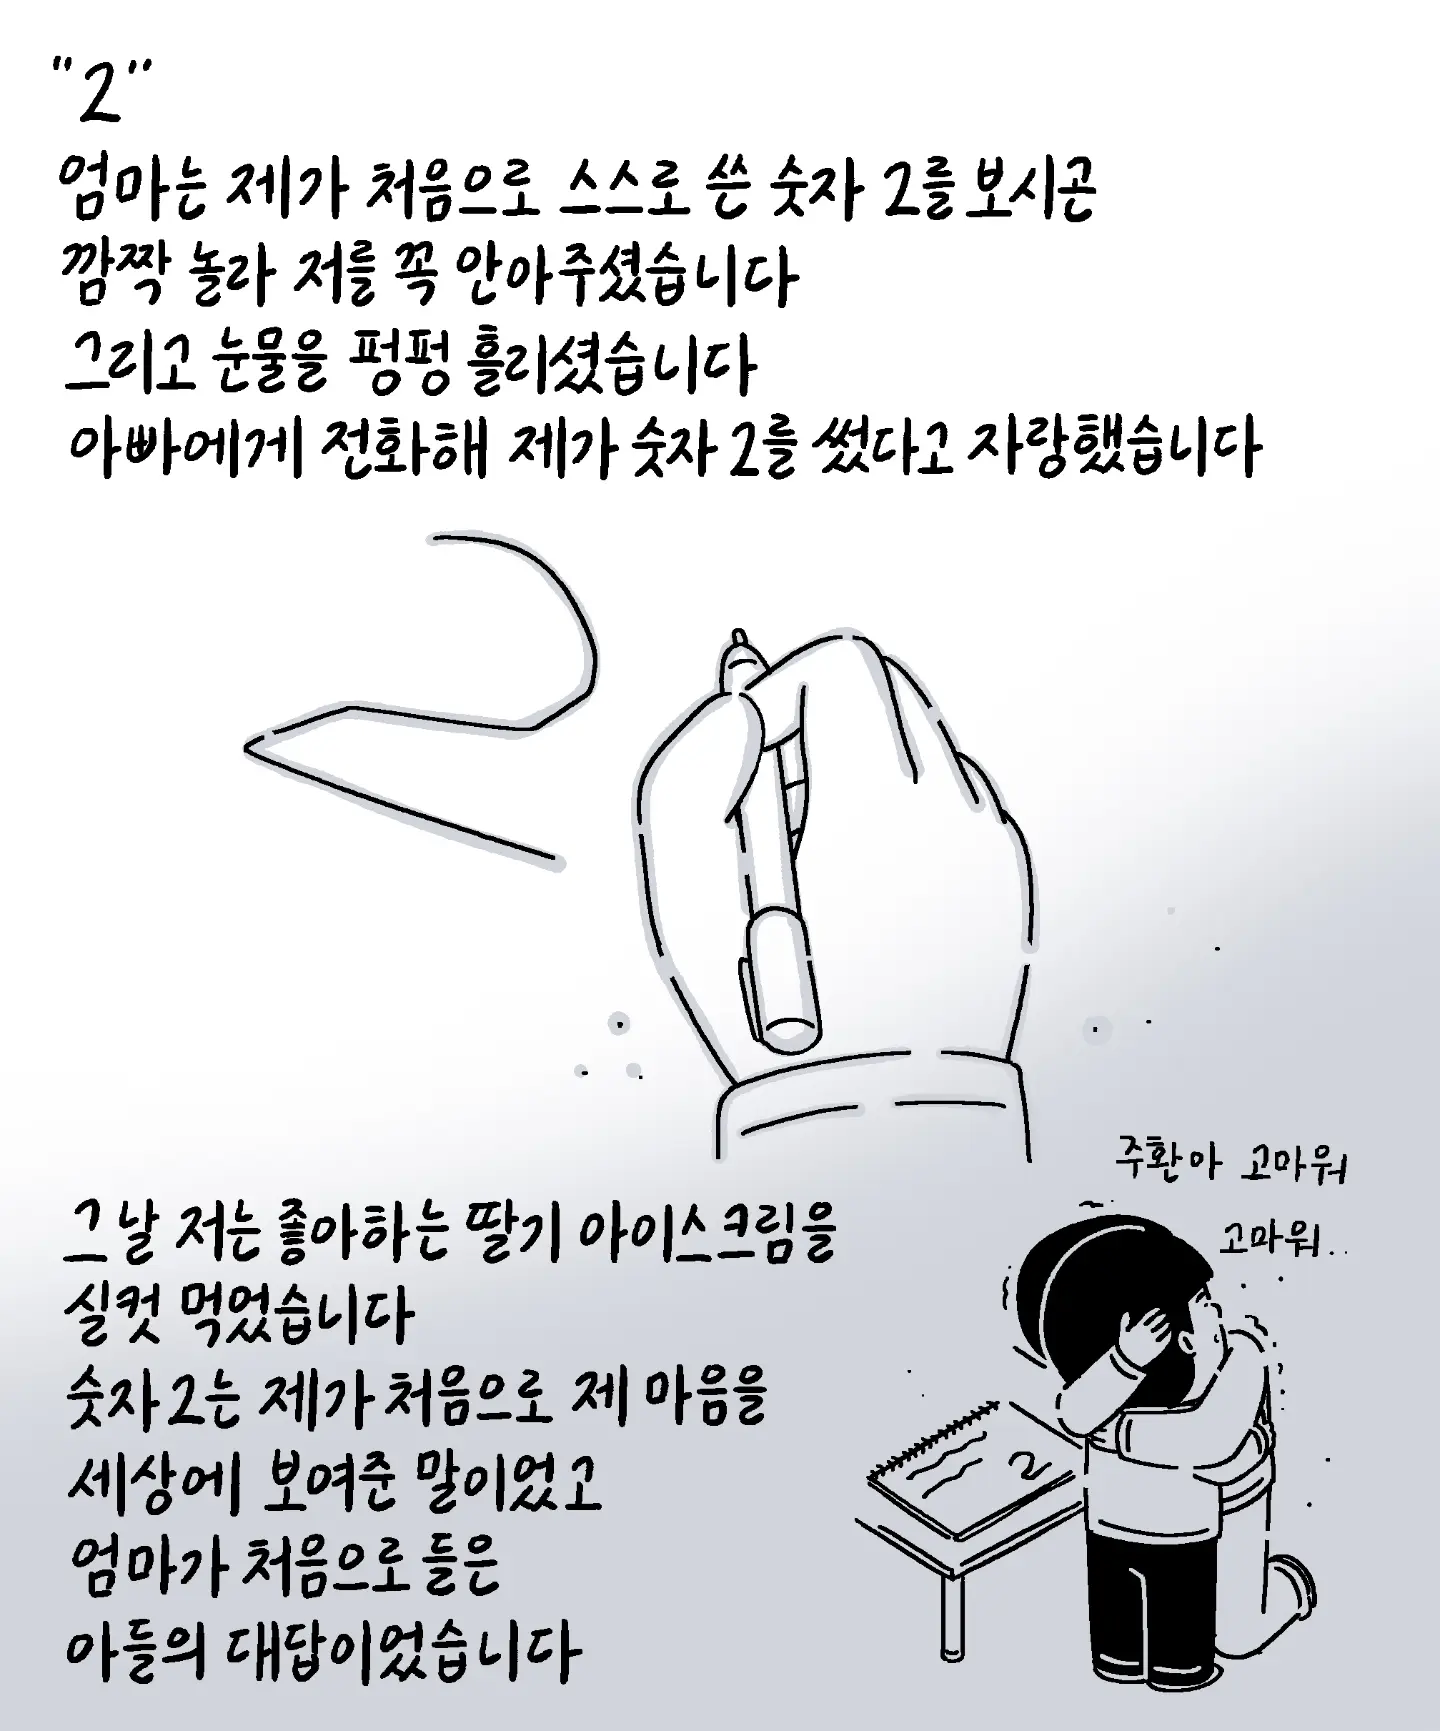 "2"
엄마는 제가 처음으로 스스로 쓴 숫자 2를 보시곤
깜짝 놀라 저를 꼭 안아주셨습니다
그리고 눈물을 펑펑 흘리셨습니다
아빠에게 전화해 제가 숫자 2를 썼다고 자랑했습니다
2
그날 저는 좋아하는 딸기 아이스크림을
실컷 먹었습니다
숫자 2는 제가 처음으로 제 마음을
세상에 보여준 말이었고
엄마가 처음으로 들은
아들의 대답이었습니다
주환아 고마워
고마워..
2